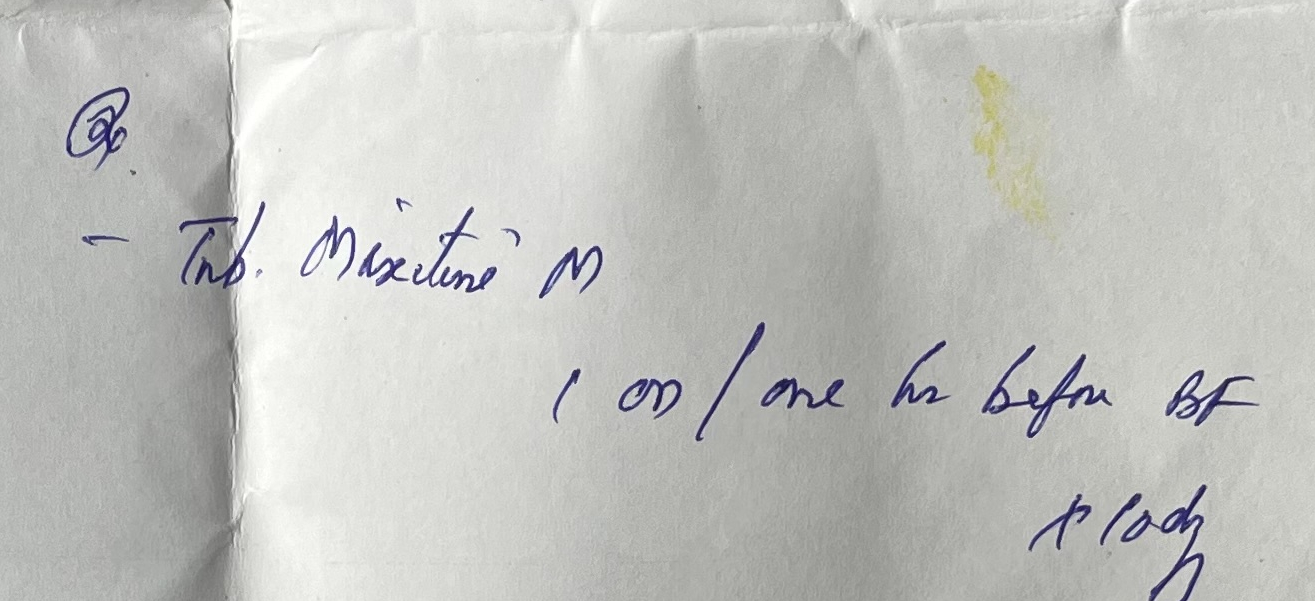 Rx
- Tab. Maxitone M
1 OD / one hr before BF
x 10 dy